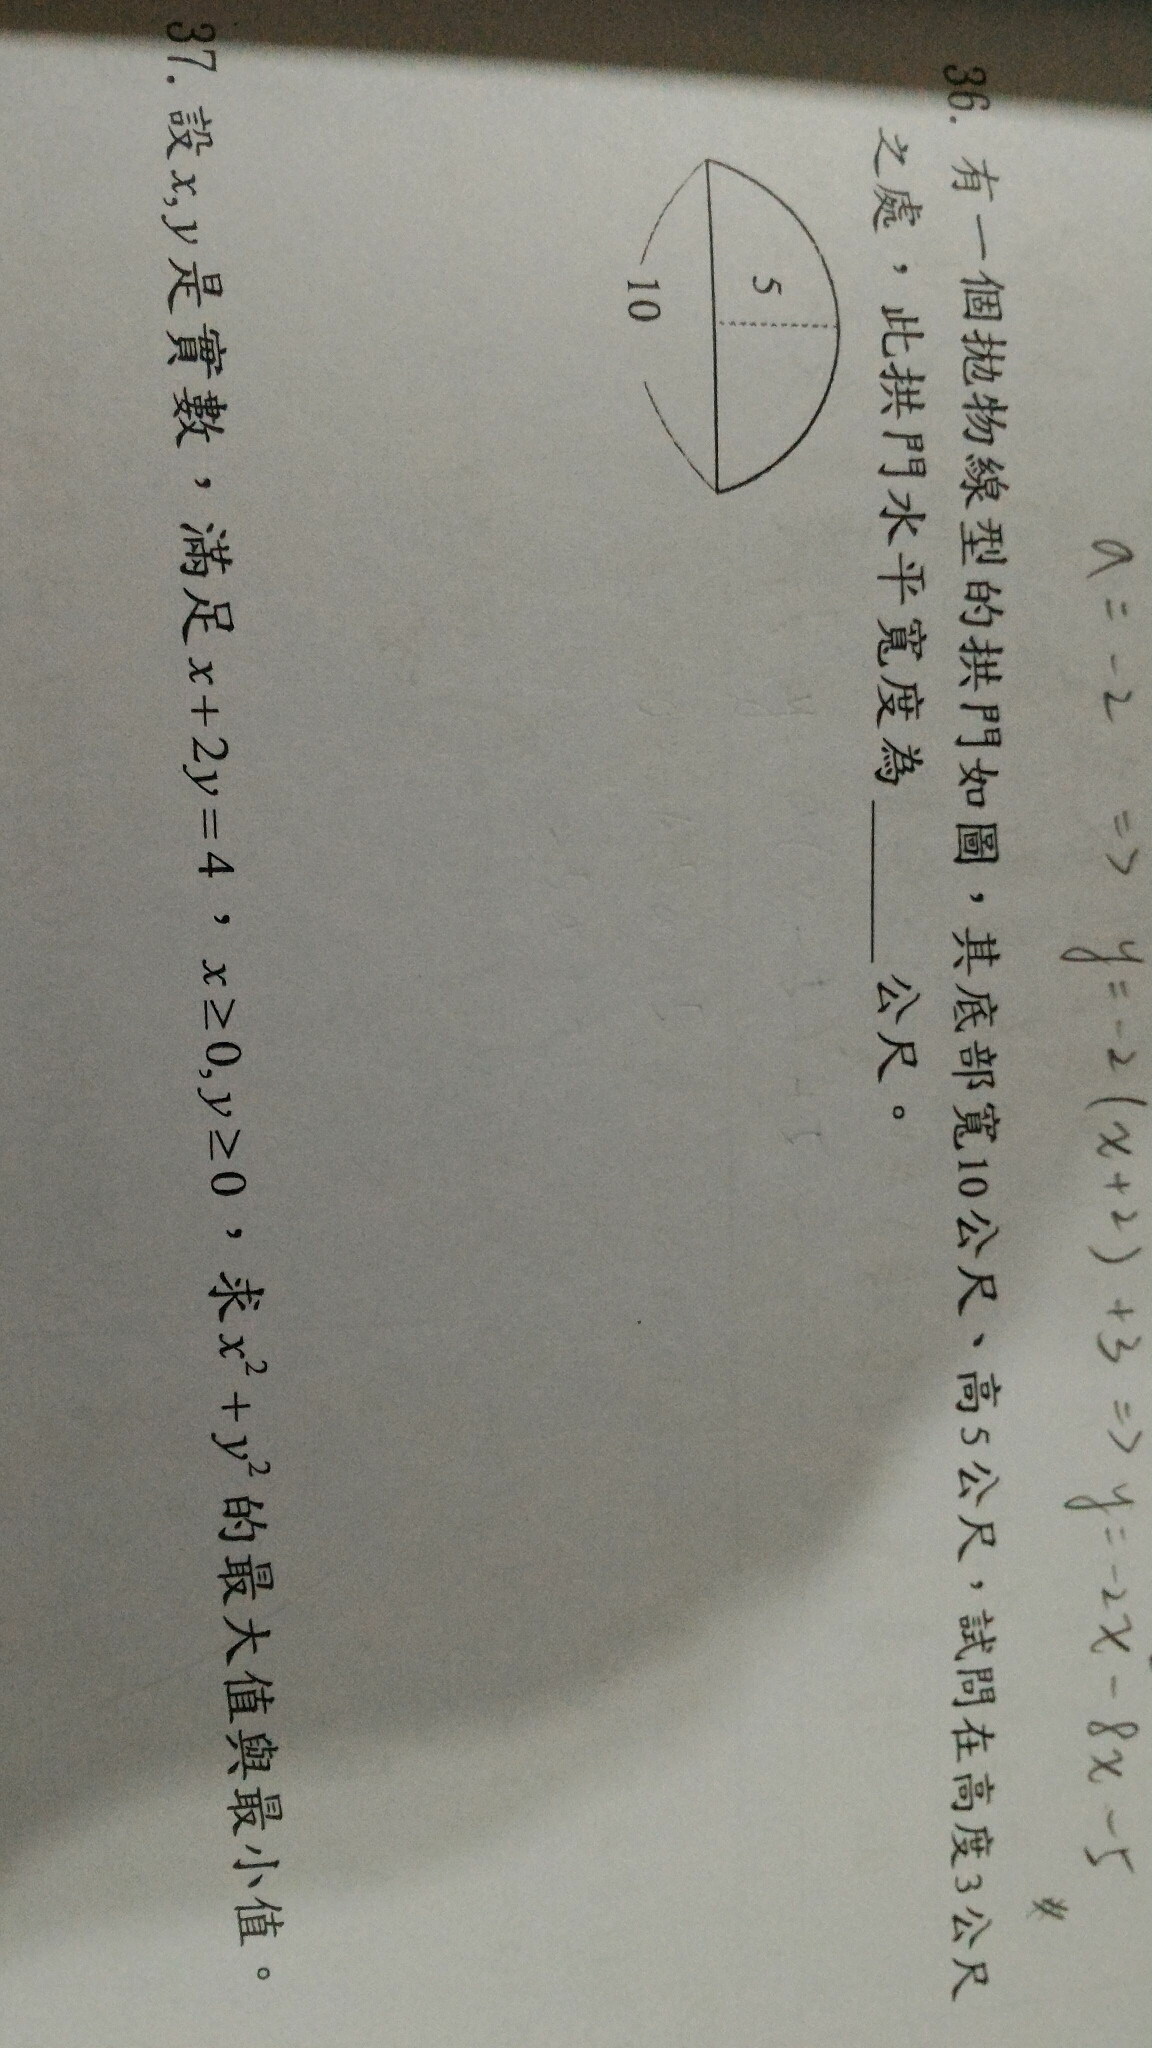 a = -2 => y = -2(x+2) +3 => y = -2x - 8x - 5
#
36. 有一個拋物線型的拱門如圖，其底部寬10公尺、高5公尺，試問在高度3公尺
之處，此拱門水平寬度為＿＿＿公尺。
5
10
37. 設x,y是實數，滿足x+2y=4，x≥0,y≥0，求x²+y²的最大值與最小值。